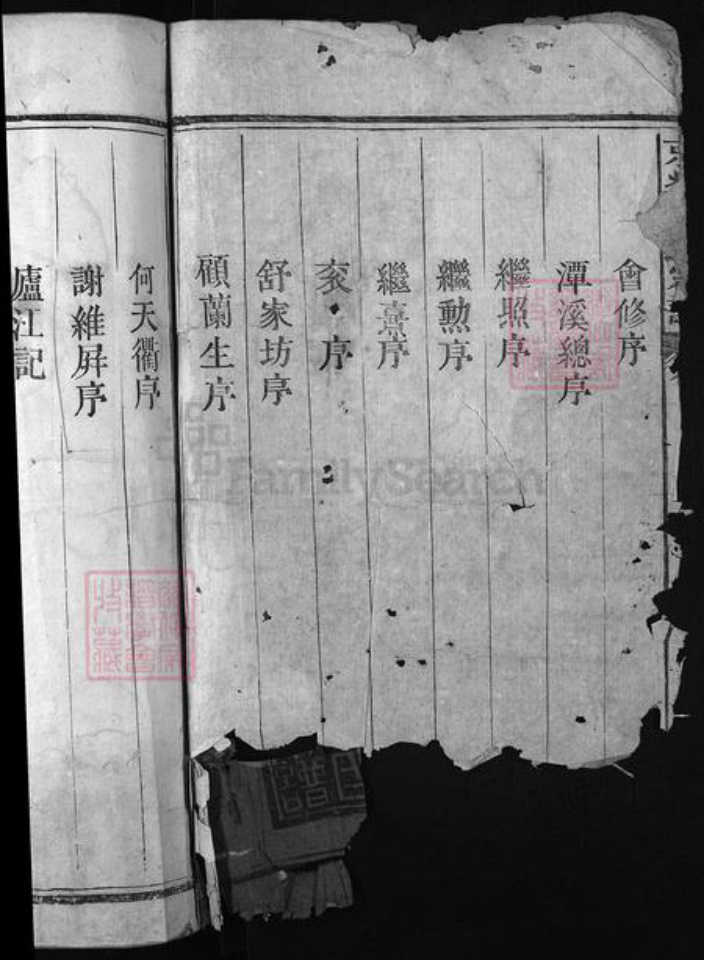 會修序
潭溪總序
繼照序
繼勲序
繼熹序
衮序
舒家坊序
顧蘭生序
何天衢序
謝維屏序
廬江記
FamilySearch